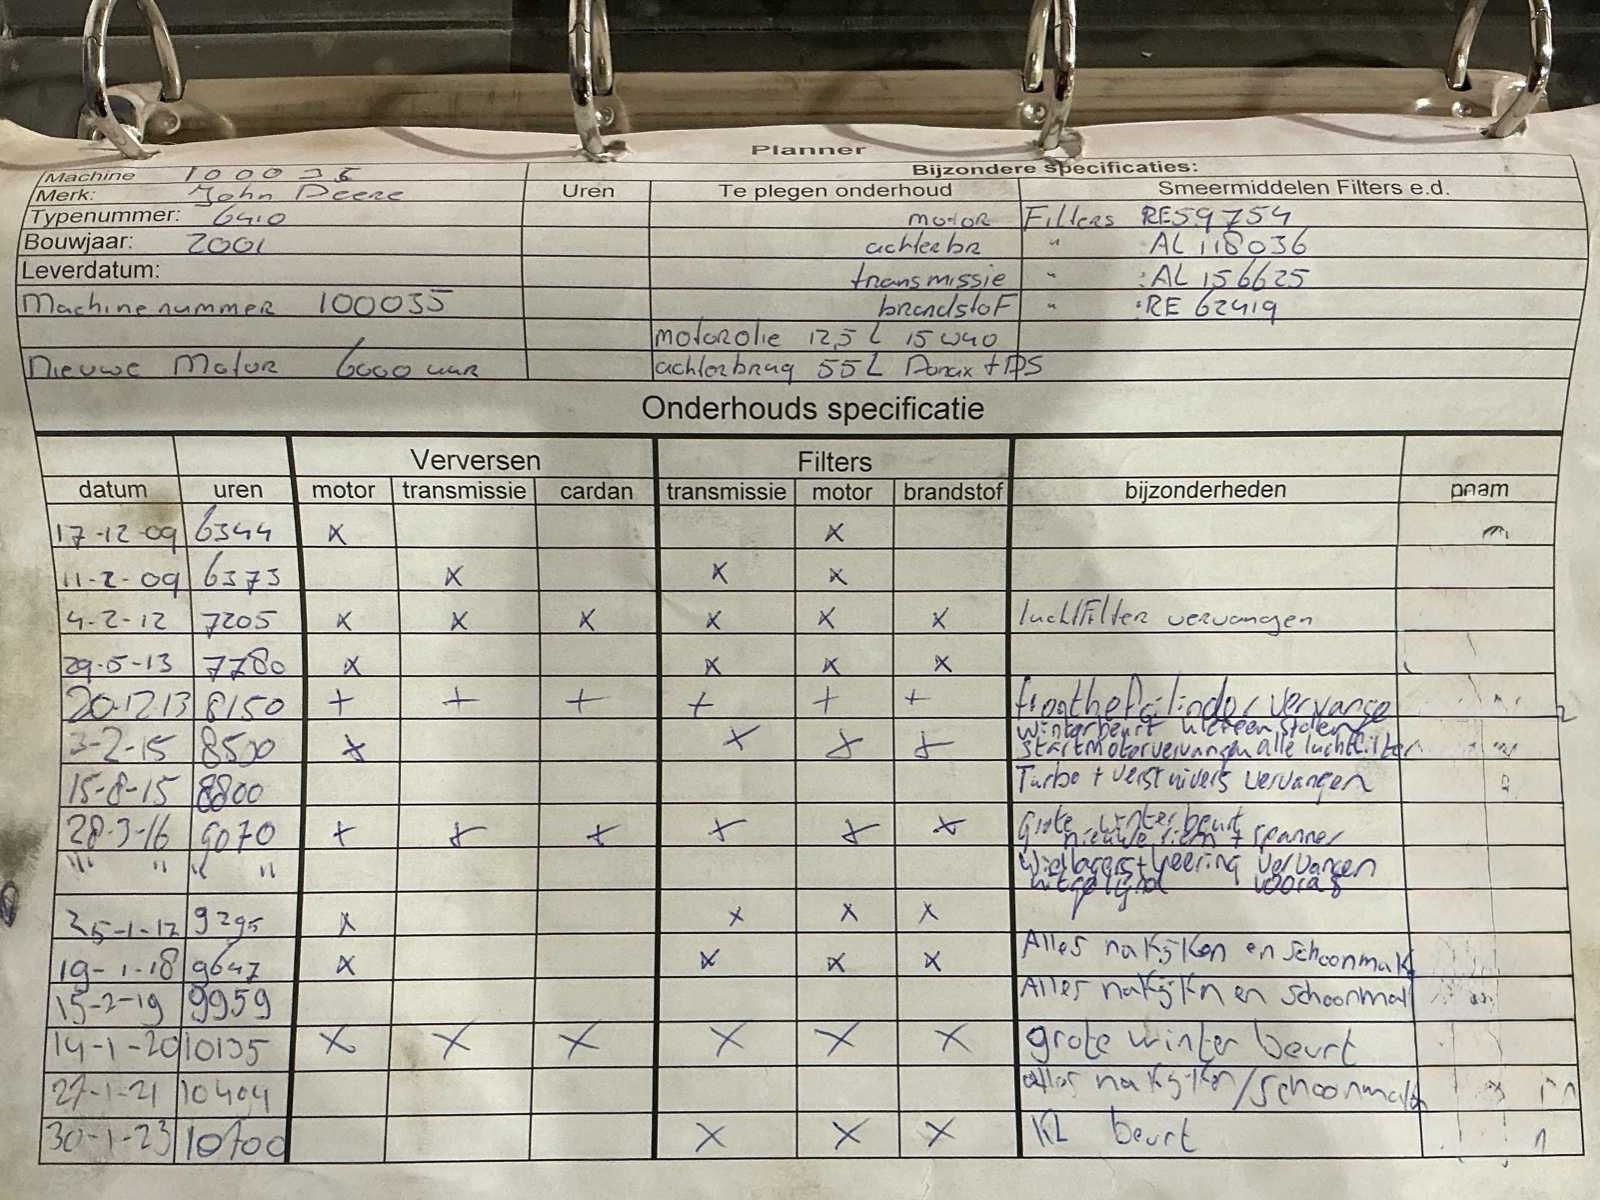 Planner
Machine 100035 Bijzondere specificaties:
Merk: John Deere Uren Te plegen onderhoud Smeermiddelen Filters e.d.
Typenummer: 6410 motor Filters RE59754
Bouwjaar: 2001 achterbr " AL 118036
Leverdatum: transmissie " :AL 156625
Machinenummer 100035 brandstof " :RE 62419
motorolie 12,5 L 15W40
Nieuwe Motor 6000 uur achterbrug 55L Donax + DS
Onderhouds specificatie
Verversen Filters
datum uren motor transmissie cardan transmissie motor brandstof bijzonderheden pnam
17-12-09 6344 x x
11-2-09 6373 x x x
4-2-12 7205 x x x x x x luchtFilter vervangen
29-5-13 7780 x x x x
20-12-13 8150 + + + + + + fronthefcilinder vervange
3-2-15 8500 x x x x winterbeurt
startmotor vervangen alle luchtfilter
15-8-15 8800 Turbo + verstuivers vervangen
28-3-16 9070 x x x x x x Grote winterbeurt
nieuwe riem + spanner
"" " " " Wiellagers + keering vervangen
uitgelijnd vooras
25-1-17 9295 x x x x
19-1-18 9647 x x x x Alles nakijken en schoonmak
15-2-19 9959 Alles nakijkn en schoonmak
14-1-20 10135 x x x x x x grote winter beurt
27-1-21 10404 alles nakijken/schoonmaken
30-1-23 10700 x x x KL beurt